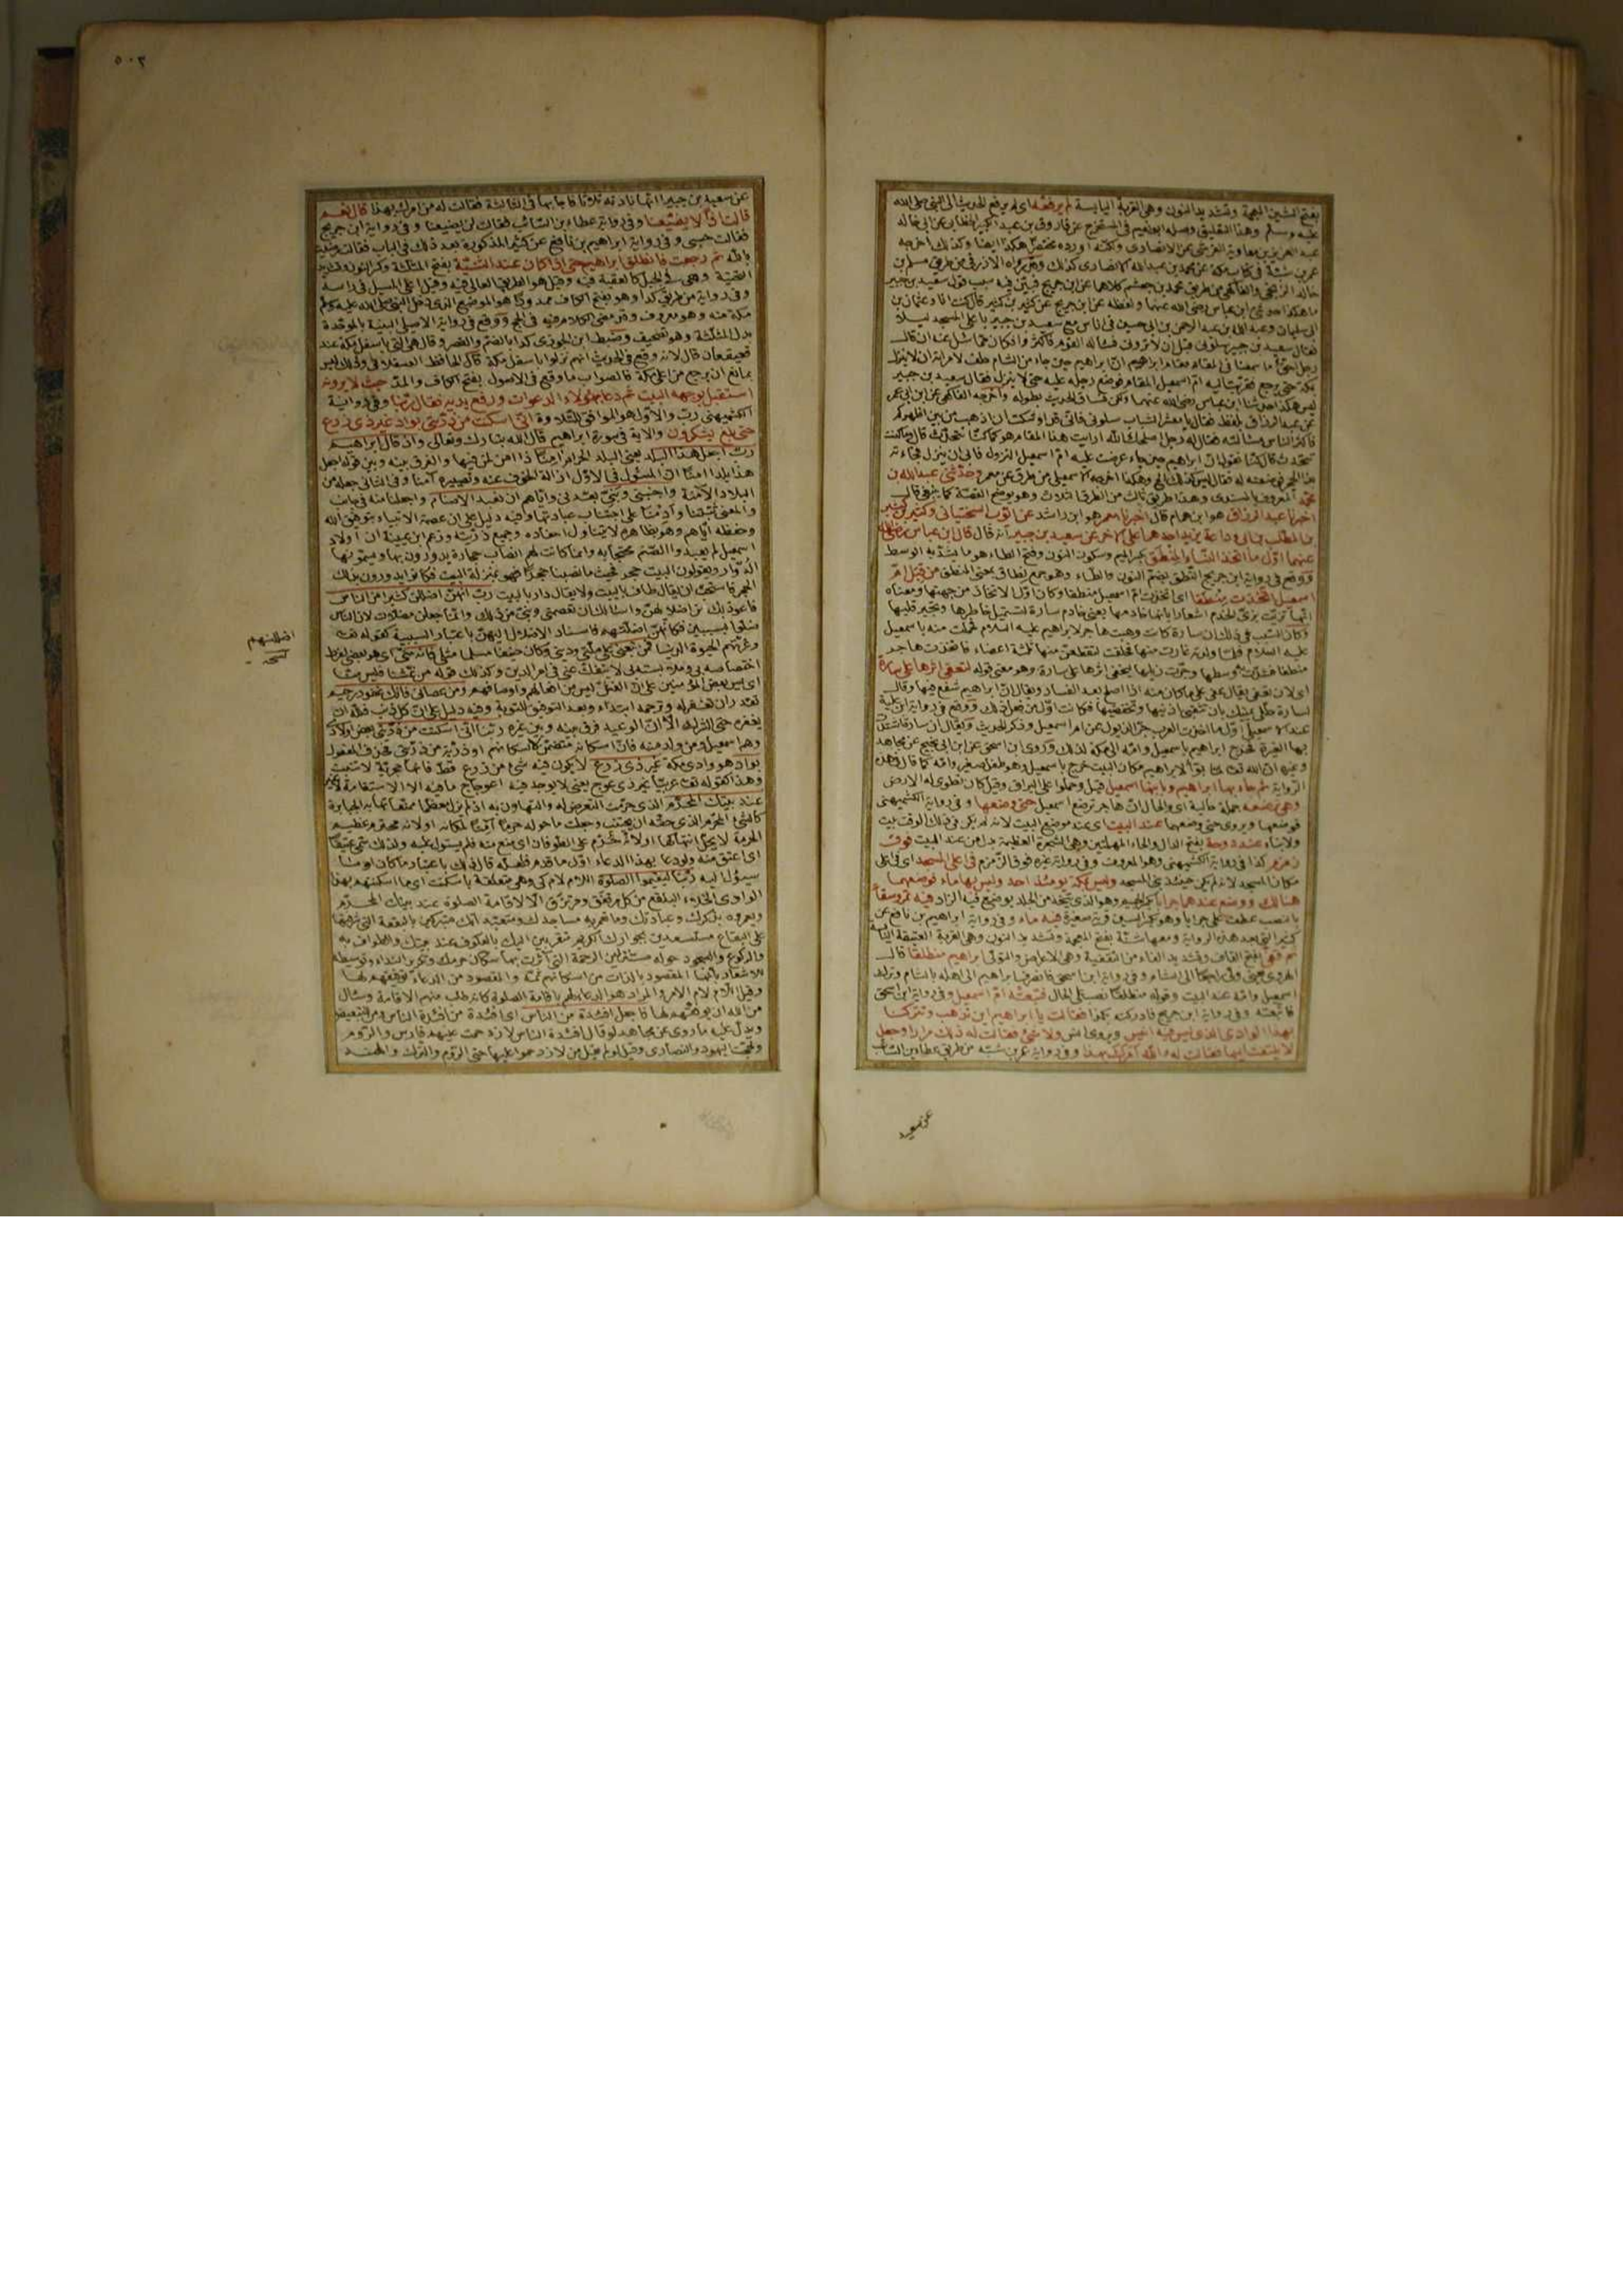 بفتح الشين المعجمة وتشديد النون وهى القربة اليابسة لم يرفعه اى لم يرفع الحديث الى النبى صلى الله
عليه وسلم وهذا التعليق وصله ابو نعيم فى المستخرج عن فاروق بن عبد الكبير الخطابى عن ابى خالد
عبد العزيز بن معاوية القرشى عن الانصارى ولكنه اورده مختصرا هكذا ايضا وكذلك اخرجه
عمر بن شبة فى كتاب مكة عن محمد بن عبد الله الانصارى كذلك وقد رواه الازرقى من طريق مسلم بن
خالد الزنجى والفاكهى من طريق محمد بن جعشم كلاهما عن ابن جريج فبين فيه سبب قول سعيد بن جبير
ما هكذا حدثنى ابن عباس رضى الله عنهما ولفظه عن ابن جريج عن كثير بن كثير قال كنت انا وعثمان بن
ابى سليمان وعبد الله بن عبد الرحمن بن ابى حسين فى اناس مع سعيد بن جبير باعلى المسجد ليلا
فقال سعيد بن جبير سلونى قبل ان لا ترونى فسأله القوم فاكثروا فكان مما سئل عنه ان قال
رجل احق ما سمعنا فى المقام مقام ابراهيم ان ابراهيم حين جاء من الشام حلف لامرأته ان لا ينزل
بمكة حتى يرجع فقربت اليه ام اسمعيل المقام فوضع رجله عليه حتى لا ينزل فقال سعيد بن جبير
ليس هكذا حدثنا ابن عباس رضى الله عنهما ولكن فساق الحديث بطوله واخرجه الفاكهى عن ابن ابى عمر
عن عبد الرزاق بلفظ فقال يا معشر الشباب سلونى فانى قد اوشكت ان اذهب من بين اظهركم
فاكثر الناس مسألته فقال له رجل اصلحك الله ارايت هذا المقام هو كما كنا نتحدث قال وما كنت
تتحدث قال كنا نقول ان ابراهيم حين جاء عرضت عليه ام اسمعيل النزول فابى ان ينزل فجاءته
بهذا الحجر فوضعته له فقال ليس كذلك وهكذا اخرجه الاسمعيلى من طرق عن معمر وحدثنى عبد الله بن
محمد المعروف بالمسندى وهذا طريق ثالث من الطرق الثلاث وهو يوضح القصة كما ينبغى قال
اخبرنا عبد الرزاق هو ابن همام قال اخبرنا معمر هو ابن راشد عن ايوب السختيانى وكثير بن كثير
بن المطلب بن ابى وداعة يزيد احدهما على الاخر عن سعيد بن جبير انه قال قال ابن عباس رضى الله
عنهما اول ما اتخذ النساء المنطق بكسر الميم وسكون النون وفتح الطاء هو ما يشد به الوسط
ووقع فى رواية ابن جريج النطق بضم النون والطاء وهو جمع نطاق بمعنى المنطق من قبل ام
اسمعيل اتخذت منطقا اى اتخذت ام اسمعيل منطقا وكان اول الاتخاذ من جهتها ومعناه
انها تزيت بزى الخدم اشعارا بانها خادمها يعنى خادم سارة لتستميل خاطرها وتجبر قلبها
وكان السبب فى ذلك ان سارة كانت وهبت هاجر لابراهيم عليه السلام فحملت منه باسمعيل
عليه السلام فلما ولدته غارت منها فحلفت لتقطعن منها ثلثة اعضاء فاتخذت هاجر
منطقا فشدت به وسطها وجرت ذيلها ليخفى اثرها على سارة وهو معنى قوله لتعفى اثرها على سارة
اى لان تعفى يقال عفى على ما كان منه اذا اصلح بعد الفساد ويقال ان ابراهيم شفع فيها وقال
لسارة حللى يمينك بان تثقبى اذنيها وتخفضيها فكانت اول من فعل ذلك ووقع فى رواية ابن علية
عند الاسمعيلى اول ما اتخذت العرب جر الذيول عن ام اسمعيل وذكر الحديث ويقال ان سارة اشتد
بها الغيرة فخرج ابراهيم باسمعيل وامه الى مكة لذلك وروى ابن اسحق عن ابن ابى نجيح عن مجاهد
وغيره ان الله تعالى لما بوأ لابراهيم مكان البيت خرج باسمعيل وهو طفل صغير وامه كما قال وهذه
الرواية ثم جاء بها ابراهيم وبابنها اسمعيل قيل وحملوا على البراق وقيل كان تطوى له الارض
وهى ترضعه جملة حالية اى والحال ان هاجر ترضع اسمعيل حتى وضعها وفى رواية الكشميهنى
فوضعها ويروى حتى وضعهما عند البيت اى عند موضع البيت لانه لم يكن فى ذلك الوقت بيت
ولا بناء عند دوحة بفتح الدال والحاء المهملتين وهى الشجرة العظيمة بدل من عند البيت فوق
زمزم كذا فى رواية الكشميهنى وهو المعروف وفى رواية غيره فوق الزمزم فى اعلى المسجد اى فى اعلى
مكان المسجد لانه لم يكن حينئذ بنى المسجد وليس بمكة يومئذ احد وليس بها ماء فوضعهما
هنالك ووضع عندهما جرابا بكسر الجيم وهو الذى يتخذ من الجلد يوضع فيه الزاد فيه تمر وسقاء
بالنصب عطف على جرابا وهو بكسر السين قربة صغيرة فيه ماء وفى رواية ابراهيم بن نافع عن
كثير التى بعد هذه الرواية ومعها شنة بفتح المعجمة وتشديد النون وهى القربة العتيقة اليابسة
ثم قفى بفتح القاف وتشديد الفاء من التقفية وهى الاعراض والتولى ابراهيم منطلقا قال
الهروى معنى ولى راجعا الى الشام وفى رواية ابن اسحق فانصرف ابراهيم الى اهله بالشام وترك
اسمعيل وامه عند البيت وقوله منطلقا نصب على الحال فتبعته ام اسمعيل وفى رواية ابن اسحق
فاتبعته وفى رواية ابن جريج فادركته بكدا فقالت يا ابراهيم اين تذهب وتتركنا
بهذا الوادى الذى ليس فيه انيس ويروى انس ولا شئ فقالت له ذلك مرارا وجعل
لا يلتفت اليها فقالت له الله امرك بهذا وفى رواية عمر بن شبة من طريق عطاء بن السائب
عن سعيد
٥٠٣
عن سعيد بن جبير انها نادته ثلاثا فاجابها فى الثالثة فقالت له من امرك بهذا قال نعم
قالت اذا لا يضيعنا وفى رواية عطاء بن السائب فقالت لن يضيعنا وفى رواية ابن جريج
فقالت حسبى وفى رواية ابراهيم بن نافع عن كثير المذكورة بعد ذلك فى الباب فقالت رضيت
بالله ثم رجعت فانطلق ابراهيم حتى اذا كان عند الثنية بفتح المثلثة وكسر النون وتشديد
التحتية وهى فى الجبل كالعقبة فيه وقيل هو الطريق العالى فيه وقيل اعلى المسيل فى راسه
وفى رواية من طريق كدا وهو بفتح الكاف ممدودا هو الموضع الذى دخل النبى صلى الله عليه وسلم
مكة منه وهو معروف وقد مضى الكلام فيه فى الحج ووقع فى رواية الاصيلى البنية بالموحدة
بدل المثلثة وهو تصحيف وضبط ابن الجوزى كدا بالضم والقصر وقال هى التى باسفل مكة عند
قعيقعان قال لانه وقع فى الحديث انهم نزلوا باسفل مكة قال الحافظ العسقلانى وذلك ليس
بمانع ان يرجع من اعلى مكة فالصواب ما وقع فى الاصول بفتح الكاف والمد حيث لا يرونه
استقبل بوجهه البيت ثم دعا بهؤلاء الدعوات ورفع يديه فقال ربنا وفى رواية
الكشميهنى رب والاول هو الموافق للتلاوة انى اسكنت من ذريتى بواد غير ذى زرع
حتى بلغ يشكرون والاية فى سورة ابراهيم قال الله تبارك وتعالى واذ قال ابراهيم
رب اجعل هذا البلد يعنى البلد الحرام امنا ذا امن لمن فيها والفرق بينه وبين قوله اجعل
هذا بلدا امنا ان المسئول فى الاول ازالة الخوف عنه وتصييره آمنا وفى الثانى جعله من
البلاد الآمنة واجنبنى وبنى بعدنى واياهم ان نعبد الاصنام واجعلنا منه فى جانب
والمعنى ثبتنا وادمنا على اجتناب عبادتها وفيه دليل على ان عصمة الانبياء بتوفيق الله
وحفظه اياهم وهو بظاهره لا يتناول احفاده وجميع ذريته وزعم ابن عيينة ان اولاد
اسمعيل لم يعبدوا الصنم محتجا به وانما كانت لهم انصاب حجارة يدورون بها ويسمونها
الدوار ويقولون البيت حجر فحيث ما نصبنا حجرا فهو بمنزلة البيت فكانوا يدورون بذلك
الحجر فاستحب ان يقال طاف بالبيت ولا يقال دار بالبيت رب انهن اضللن كثيرا من الناس
فاعوذ بك من اضلالهن واسألك ان تعصمنى وبنى من ذلك وانما جعلن مضلات لان الناس
ضلوا بسببهن فكأنهن اضللنهم فاسناد الاضلال اليهن باعتبار السببية كقوله تعالى
وغرتهم الحيوة الدنيا فمن تبعنى على ملتى ودينى وكان حنيفا مسلما مثلى فانه منى اى هو بعضى لفرط
اختصاصه بى وملابسته لى لا ينفك عنى فى امر الدين وكذلك قوله من غشنا فليس منا
اى ليس بعض المؤمنين على ان الغش ليس من افعالهم واوصافهم ومن عصانى فانك غفور رحيم
تقدر ان تغفر له وترحمه ابتداء وبعد التوفيق للتوبة وفيه دليل على ان كل ذنب فلله ان
يغفره حتى الشرك الا ان الوعيد فرق بينه وبين غيره ربنا انى اسكنت من ذريتى بعض اولادى
وهم اسمعيل ومن ولد منه فان اسكانه متضمن لاسكانهم او ذرية من ذريتى فحذف المفعول
بواد هو وادى مكة غير ذى زرع لا يكون فيه شئ من زرع قط فانها حجرية لا تنبت
وهذا كقوله تعالى عربيا غير ذى عوج يعنى لا يوجد فيه اعوجاج ما فيه الا الاستقامة لا غير
عند بيتك المحرم الذى حرمت التعرض له والتهاون به اذ لم يزل معظما ممنعا تهابه الجبابرة
كالشئ المحرم الذى حقه ان يجتنب وجعلت ما حوله حرما آمنا لمكانه او لانه محترم عظيم
الحرمة لا يحل انتهاكها او لانه حرم على الطوفان اى منع منه فلم يستول عليه ولذلك سمى عتيقا
اى اعتق منه ولو دعا بهذا الدعاء اول ما قدم فلعله قال ذلك باعتبار ما كان او ما
سيؤل اليه ربنا ليقيموا الصلوة اللام لام كى وهى متعلقة باسكنت اى ما اسكنتهم بهذا
الوادى الخلاء البلقع من كل مرتفق ومرتزق الا لاقامة الصلوة عند بيتك المحرم
ويعمروه بذكرك وعبادتك وما تعمر به مساجدك ومتعبداتك متبركين بالبقعة التى شرفتها
على البقاع مستسعدين بجوارك الكريم متقربين اليك بالعكوف عند بيتك والطواف به
والركوع والسجود حوله مستنزلين الرحمة التى آثرت بها سكان حرمك وتكرير النداء وتوسيطه
للاشعار بانها المقصود بالذات من اسكانهم ثمة والمقصود من الدعاء توفيقهم لها
وقيل اللام لام الامر والمراد هو الدعاء لهم باقامة الصلوة كانه طلب منهم الاقامة وسأل
من الله ان يوفقهم لها فاجعل افئدة من الناس اى افئدة من افئدة الناس ومن للتبعيض
ويدل عليه ما روى عن مجاهد لو قال افئدة الناس لازدحمت عليهم فارس والروم
ولحجت اليهود والنصارى وقيل لو لم يقل من لازدحموا عليها حتى الروم والترك والهند
اضللنهم
نسخه